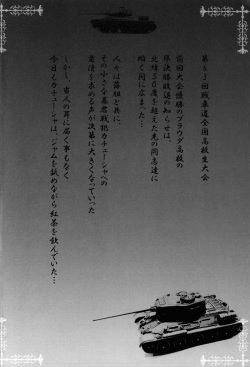 第62回戦車道全国高校生大会
前回大会優勝のプラウダ高校の
準決勝敗退の知らせは、
北緯50度を超えた先の同志達に
瞬く間に広まった…
人々は落胆と共に、
その小さな暴君戦犯カチューシャへの
粛清を求める声が次第に大きくなっていった
しかし、当人の耳に届く事もなく
今日もカチューシャは、ジャムを舐めながら紅茶を飲んでいた…